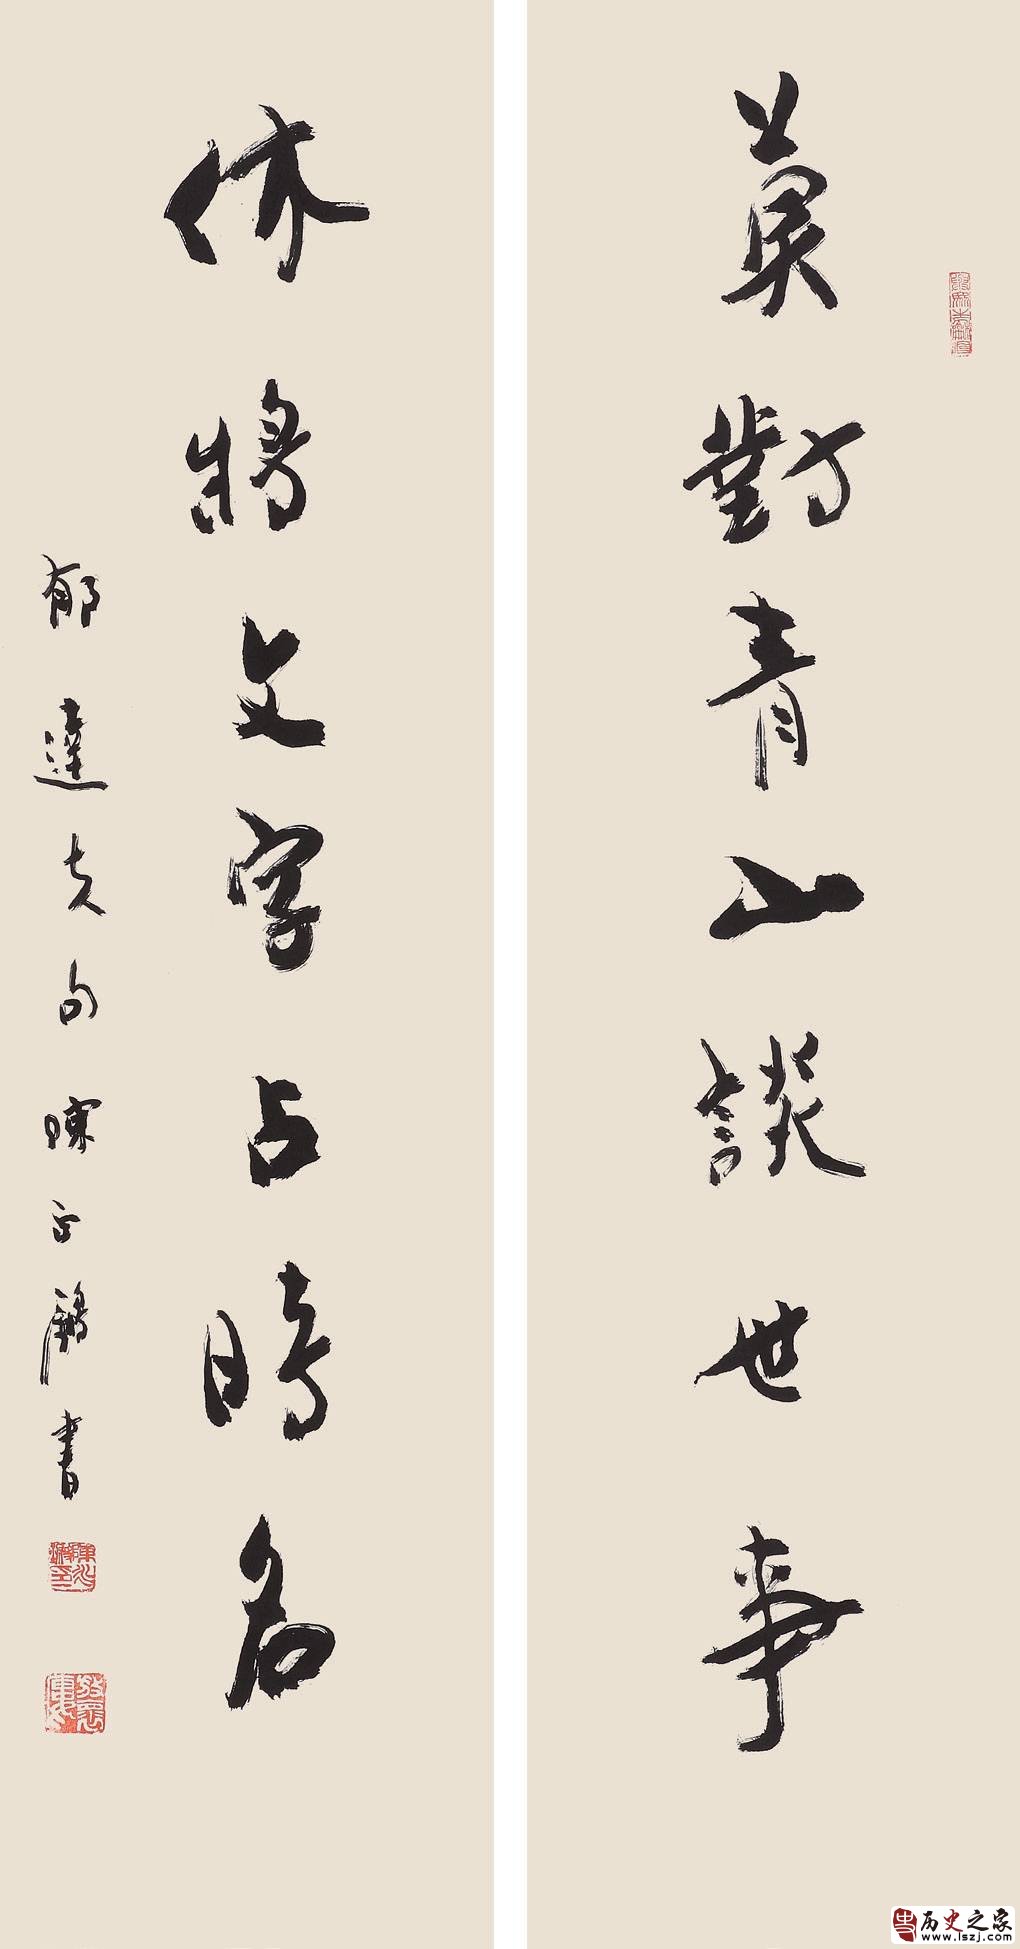 莫對青山談世事
休將文字占時名
郁達夫句 陳正濂書
历史之家
www.lszj.com